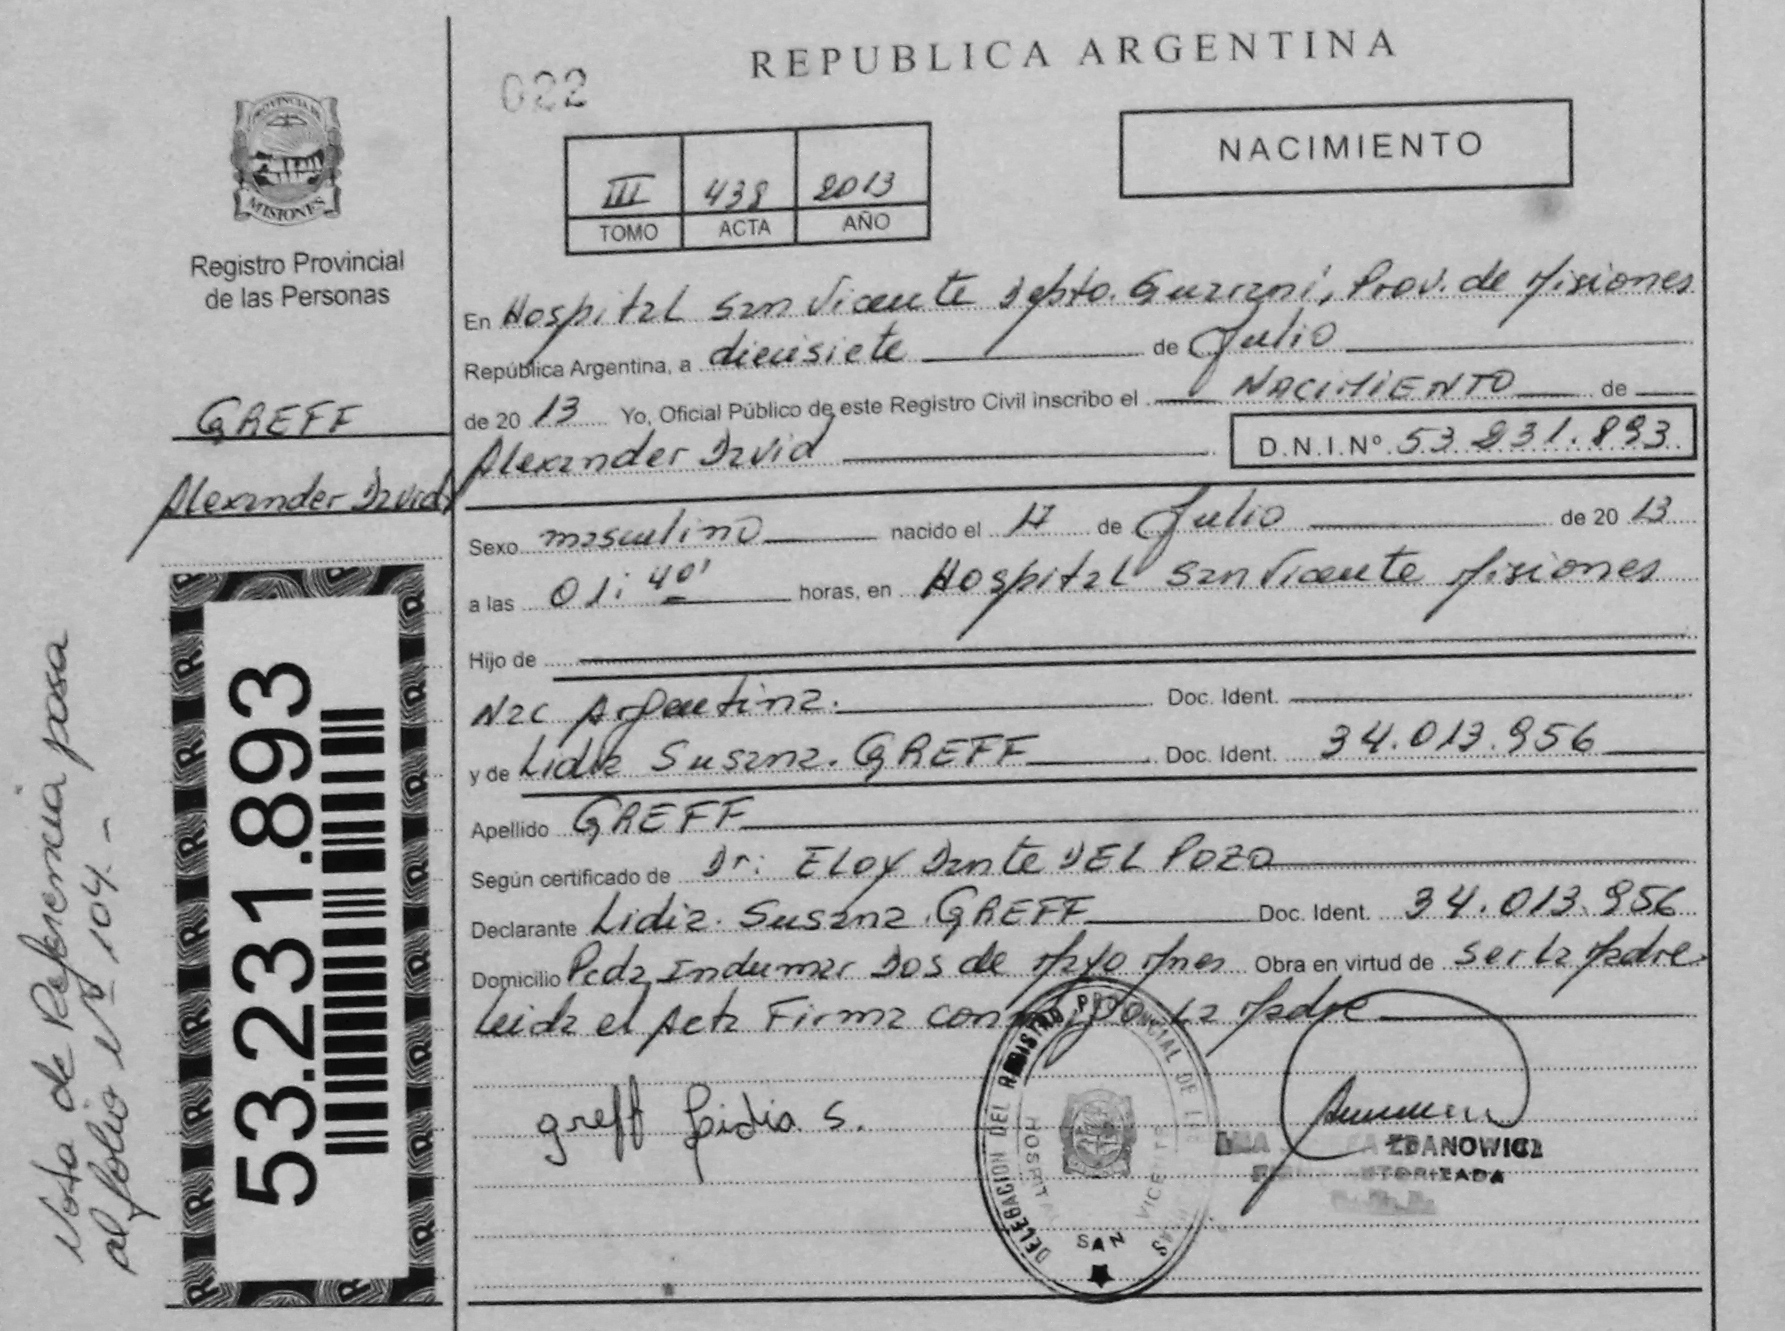 REPUBLICA ARGENTINA
022
NACIMIENTO
III 438 2013
TOMO ACTA AÑO
PROVINCIA DE
MISIONES
Registro Provincial
de las Personas
GREFF
Alexander David
53.231.893
Nota de Referencia pasa
al folio Nº 104.-
En Hospital San Vicente Depto. Guaraní, Prov. de Misiones
República Argentina, a diecisiete de Julio
de 2013 Yo, Oficial Público de este Registro Civil inscribo el NACIMIENTO de
Alexander David D.N.I.Nº 53.231.893.
Sexo masculino nacido el 17 de Julio de 2013
a las 01:40' horas, en Hospital San Vicente Misiones
Hijo de
Nac Argentina. Doc. Ident.
y de Lidia Susana. GREFF Doc. Ident. 34.013.956
Apellido GREFF
Según certificado de Dr: ELOY Dante DEL POZO
Declarante Lidia. Susana. GREFF Doc. Ident. 34.013.956
Domicilio Pcda Indumar Dos de Mayo Mnes Obra en virtud de ser la Madre
Leida el Acta Firma conmigo La Madre
Greff Lidia S.
DELEGACION DEL REGISTRO PROVINCIAL DE LAS
HOSPITAL SAN VICENTE
ZDANOWICZ